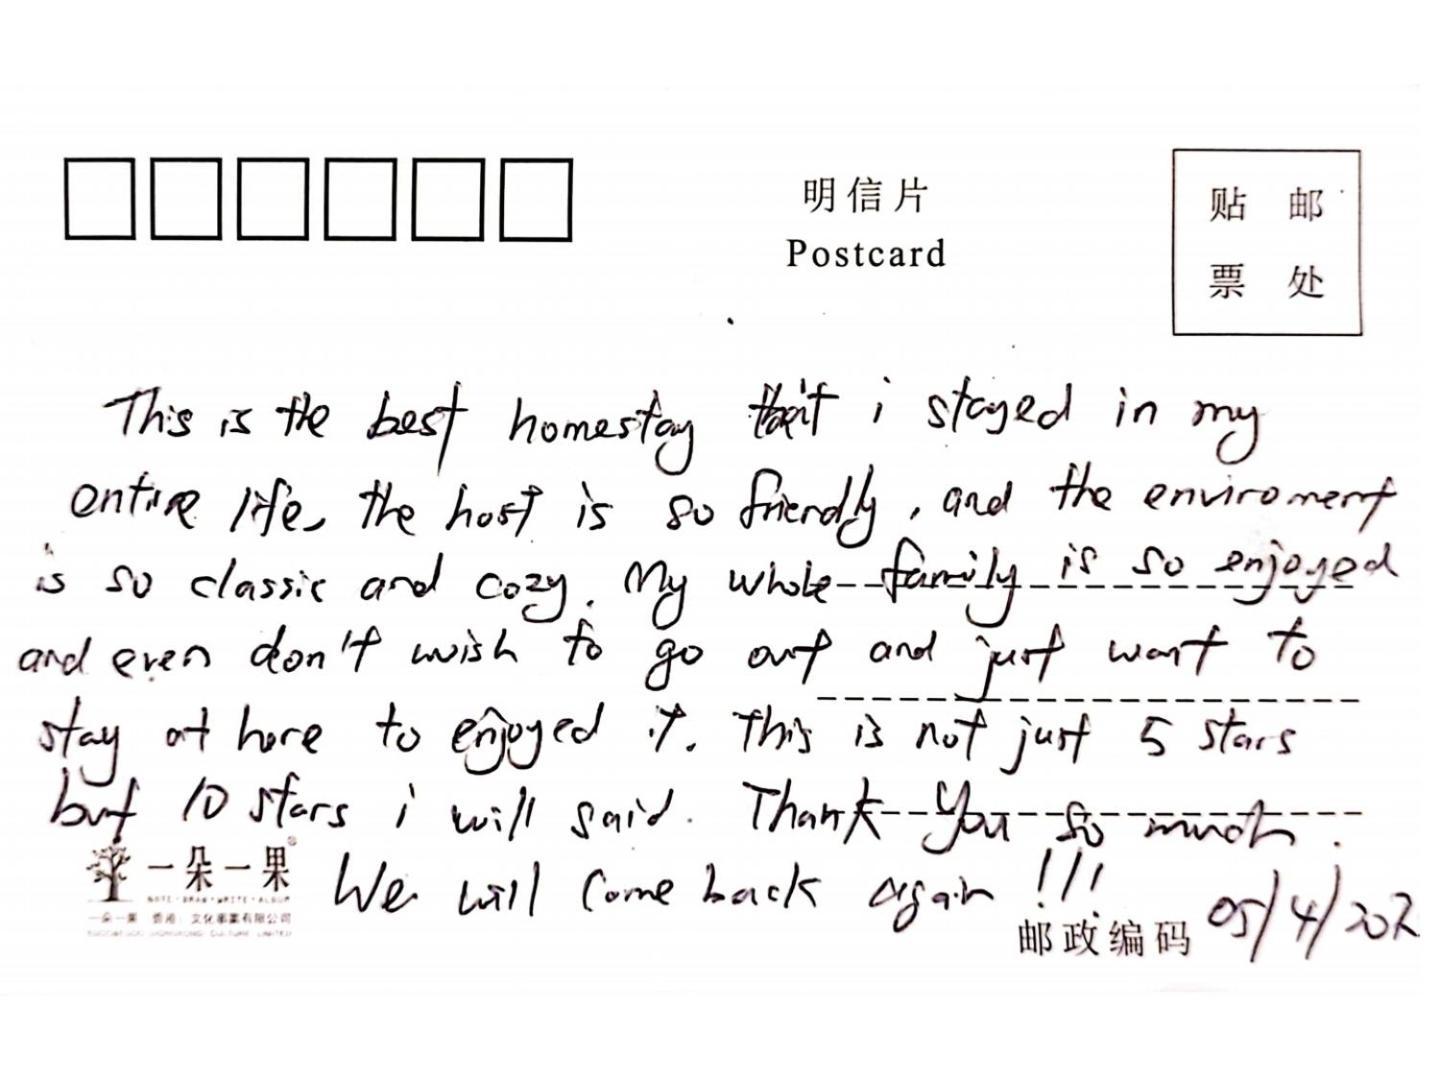 明信片
Postcard
贴 邮
票 处
This is the best homestay that i stayed in my
entire life, the host is so friendly, and the enviroment
is so classic and cozy. My whole family is so enjoyed
and even don't wish to go out and just want to
stay at here to enjoyed it. This is not just 5 stars
but 10 stars i will said. Thank you so much.
一朵一果
NOTE·DRAW·WRITE·ALBUM
一朵一果 香港 文化事業有限公司
We will come back again !!!
邮政编码
05/4/202